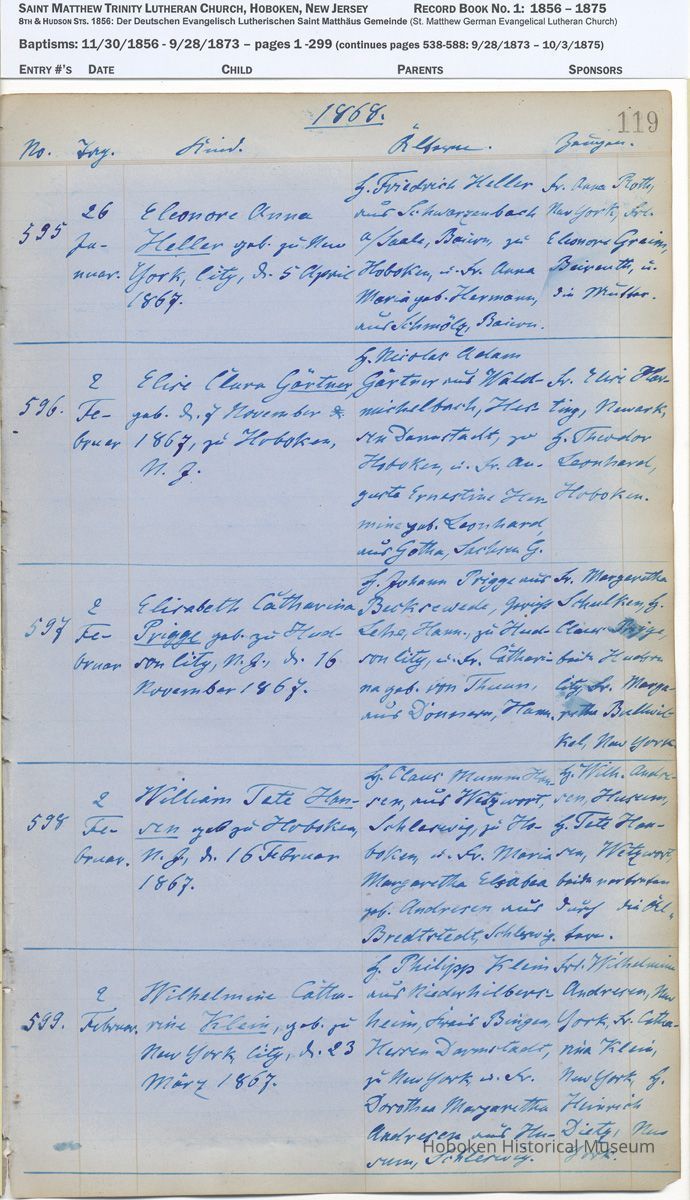 SAINT MATTHEW TRINITY LUTHERAN CHURCH, HOBOKEN, NEW JERSEY RECORD BOOK NO. 1: 1856 – 1875
8TH & HUDSON STS. 1856: Der Deutschen Evangelisch Lutherischen Saint Matthäus Gemeinde (St. Matthew German Evangelical Lutheran Church)
Baptisms: 11/30/1856 - 9/28/1873 – pages 1 -299 (continues pages 538-588: 9/28/1873 – 10/3/1875)
ENTRY #'S DATE CHILD PARENTS SPONSORS
1868.
119
No. Tag. Kind. Ältern. Zeugen.
595
26
Ja-
nuar.
Eleonore Anna
Heller geb. zu New
York, City, d. 5 April
1867.
H. Friedrich Heller
aus Schwarzenbach
a/Saale, Baiern, zu
Hoboken, u. Fr. Anna
Maria geb. Hermann,
aus Schmölz, Baiern.
Fr. Anna Roth,
New York, Frl.
Eleonore Grain,
Baireuth, u.
die Mutter.
596.
2
Fe-
bruar
Elise Clara Gärtner,
geb. d. 7 November
1867, zu Hoboken,
N. J.
H. Nicolas Adam
Gärtner aus Wald-
michelbach, Hes-
sen Darmstadt, zu
Hoboken, u. Fr. Au-
guste Ernestine Her-
mine geb. Leonhard,
aus Gotha, Sachsen G.
Fr. Elise Har-
ting, Newark,
H. Theodor
Leonhard,
Hoboken.
597
2
Fe-
bruar
Elisabeth Catharina
Prigge geb. zu Hud-
son City, N. J., d. 16
November 1867.
H. Johann Prigge aus
Lehe, Hann., zu Hud-
son City, u. Fr. Cathari-
na geb. von Thun,
aus Donnern, Hann.
Fr. Margaretha
Schulken, H.
Claus Prigge,
beide Hudson
City, Fr. Marga-
retha Bullwin-
kel, New York
598
2
Fe-
bruar.
William Tete Han-
sen geb zu Hoboken,
N. J., d. 16 Februar
1867.
H. Claus Mumm Han-
sen, aus Witzwort,
Schleswig, zu Ho-
boken, u. Fr. Maria
Margaretha Elsabea
geb. Andresen aus
Bredtstedt, Schleswig.
H. Wilh. Andre-
sen, Husum,
H. Tete Han-
sen, Witzwort,
beide vertreten
durch die Äl-
tern.
599.
2
Februar.
Wilhelmine Catha-
rine Klein, geb. zu
New York City, d. 23
März 1867.
H. Philipp Klein
aus Niederhilbers-
heim, Kreis Bingen,
Hessen Darmstadt,
zu New York u. Fr.
Dorothea Margaretha
Andresen aus Hu-
sum, Schleswig.
Frl. Wilhelmine
Andresen, New
York, Fr. Catha-
rina Klein,
New York, H.
Heinrich
Dietz, New
York.
Hoboken Historical Museum